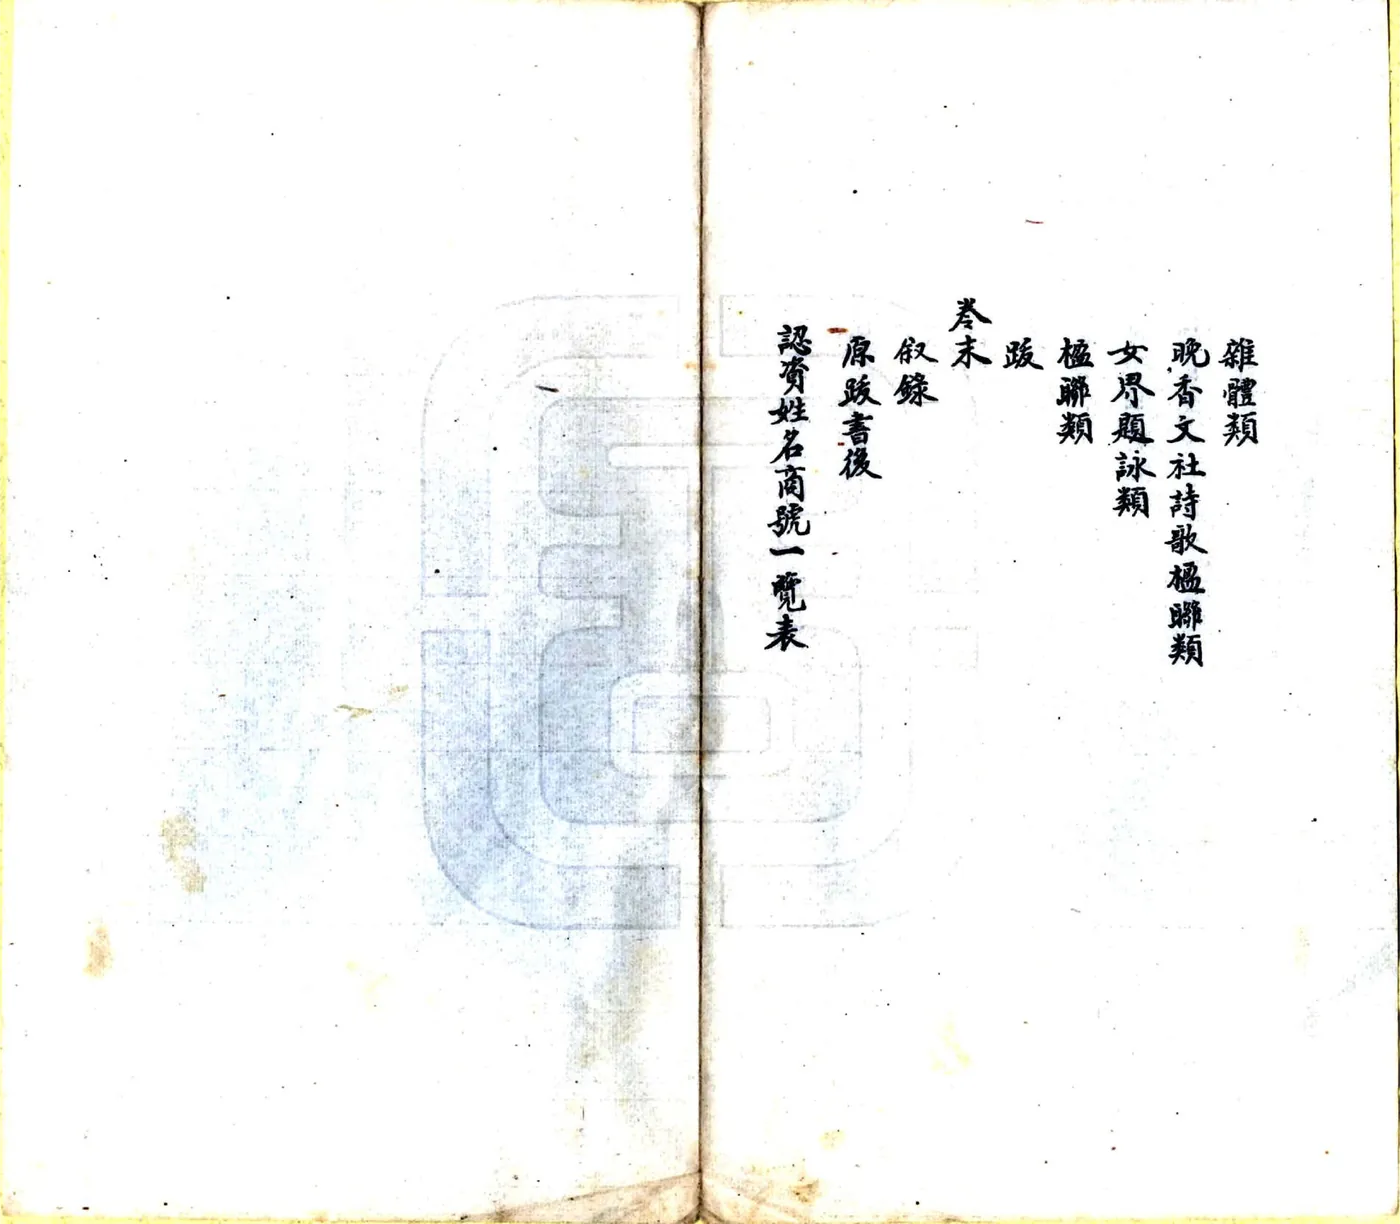 雜體類
晚香文社詩歌楹聯類
女界題詠類
楹聯類
跋
卷末
叙錄
原跋書後
認資姓名商號一覽表